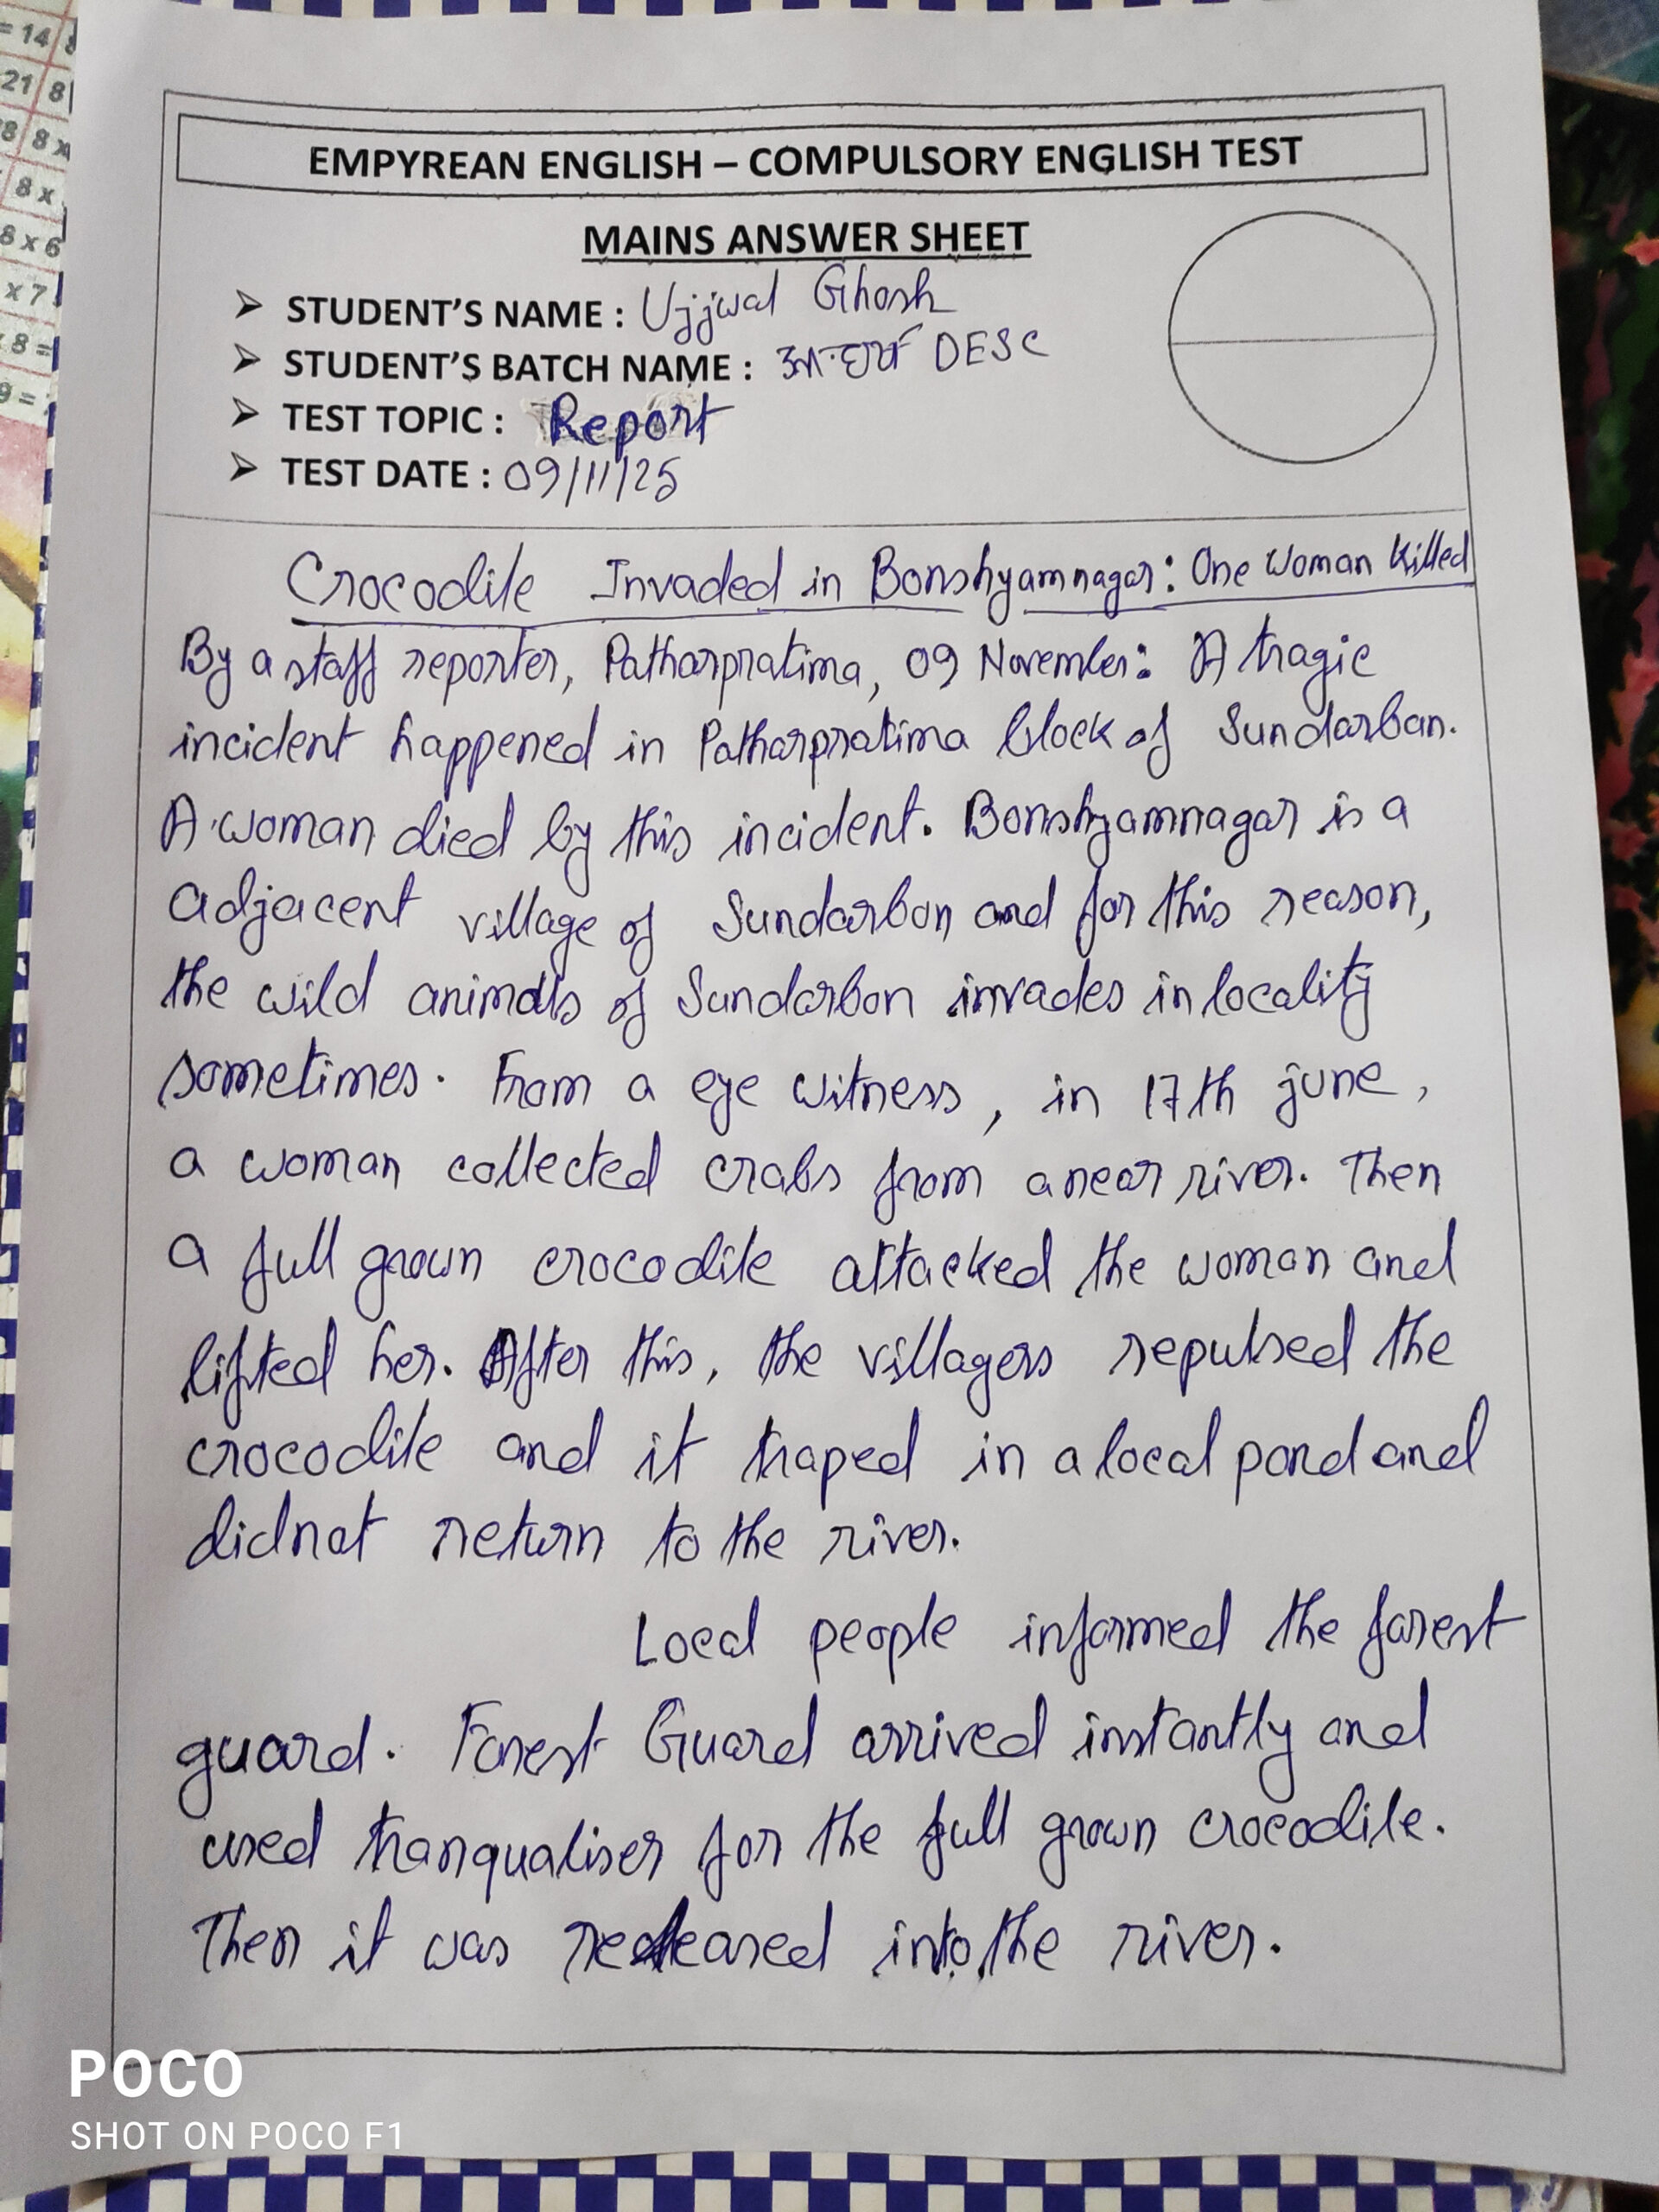 = 14 8
21 8
8 8 x
8 x
8 x 6
x 7
x 8 =
9 =
EMPYREAN ENGLISH – COMPULSORY ENGLISH TEST
MAINS ANSWER SHEET
➤ STUDENT'S NAME : Ujjwal Ghosh
➤ STUDENT'S BATCH NAME : DESC
➤ TEST TOPIC : Report
➤ TEST DATE : 09/11/25
Crocodile Invaded in Bonshyamnagar: One Woman Killed
By a staff reporter, Patharpratima, 09 November: A tragic
incident happened in Patharpratima block of Sundarban.
A woman died by this incident. Bonshyamnagar is a
adjacent village of Sundarbon and for this reason,
the wild animals of Sundarbon invades in locality
sometimes. From a eye witness, in 17th june,
a woman collected crabs from a near river. Then
a full grown crocodile attacked the woman and
lifted her. After this, the villagers repulsed the
crocodile and it traped in a local pond and
didnot return to the river.
Local people informed the forest
guard. Forest Guard arrived instantly and
used tranqualiser for the full grown crocodile.
Then it was released into the river.
POCO
SHOT ON POCO F1